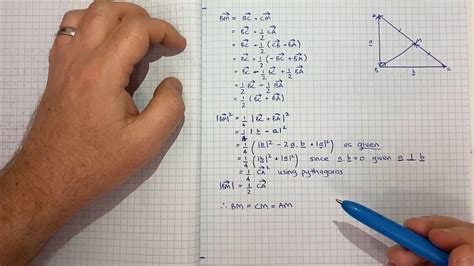 BM = BC + CM
= BC + 1/2 CA
= BC + 1/2 (CB + BA)
= BC + 1/2 (-BC + BA)
= BC - 1/2 BC + 1/2 BA
= 1/2 BC + 1/2 BA
= 1/2 (BC + BA)
|BM|² = 1/4 |BC + BA|²
= 1/4 |b - a|²
= 1/4 (|b|² - 2a.b + |a|²) as given
= 1/4 (|b|² + |a|²) since a.b = 0 given a ⊥ b
= 1/4 CA² using pythagoras
|BM| = 1/2 CA
∴ BM = CM = AM
A
M
a
B
b
C